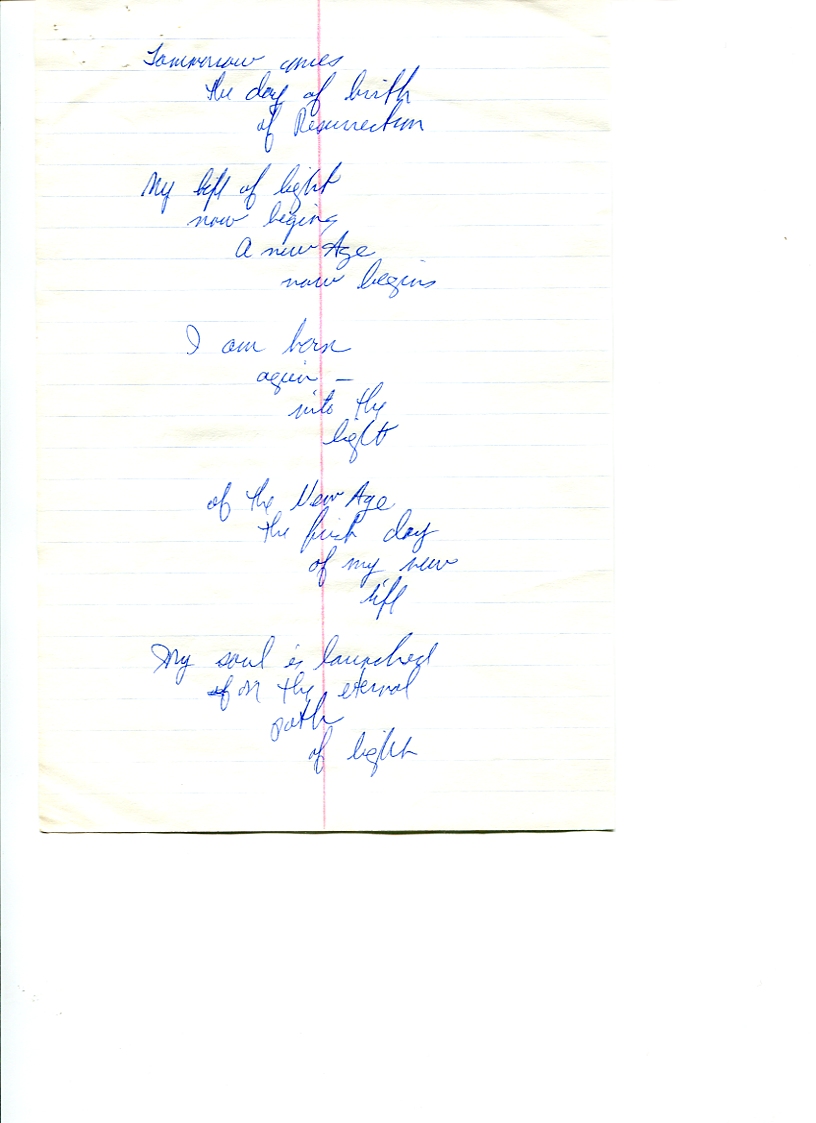 Tommorrow comes
the day of birth
of Resurrection
My life of light
now begins
A new Age
now begins
I am born
again —
into the
light
of the New Age
the first day
of my new
life
My soul is launched
on the eternal
path
of light